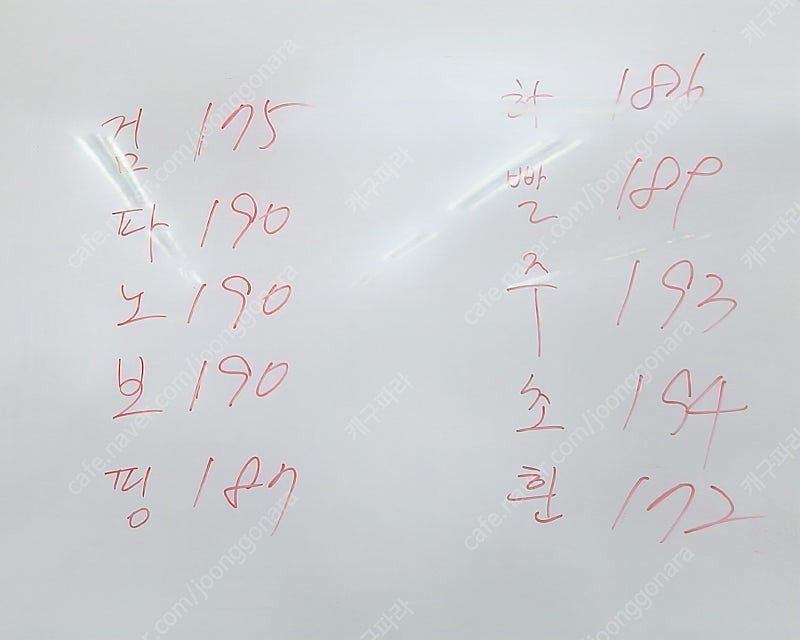 검 175
파 190
노 190
보 190
핑 187
하 186
빨 189
주 193
초 194
흰 172
cafe.naver.com/joonggonara
캐구파라